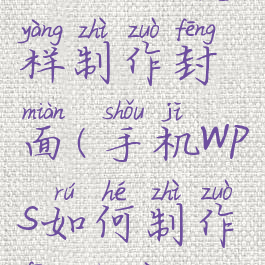 yàng zhì zuò fēng
样制作封
miàn shǒu jī
面(手机WP
rú hé zhì zuò
S如何制作